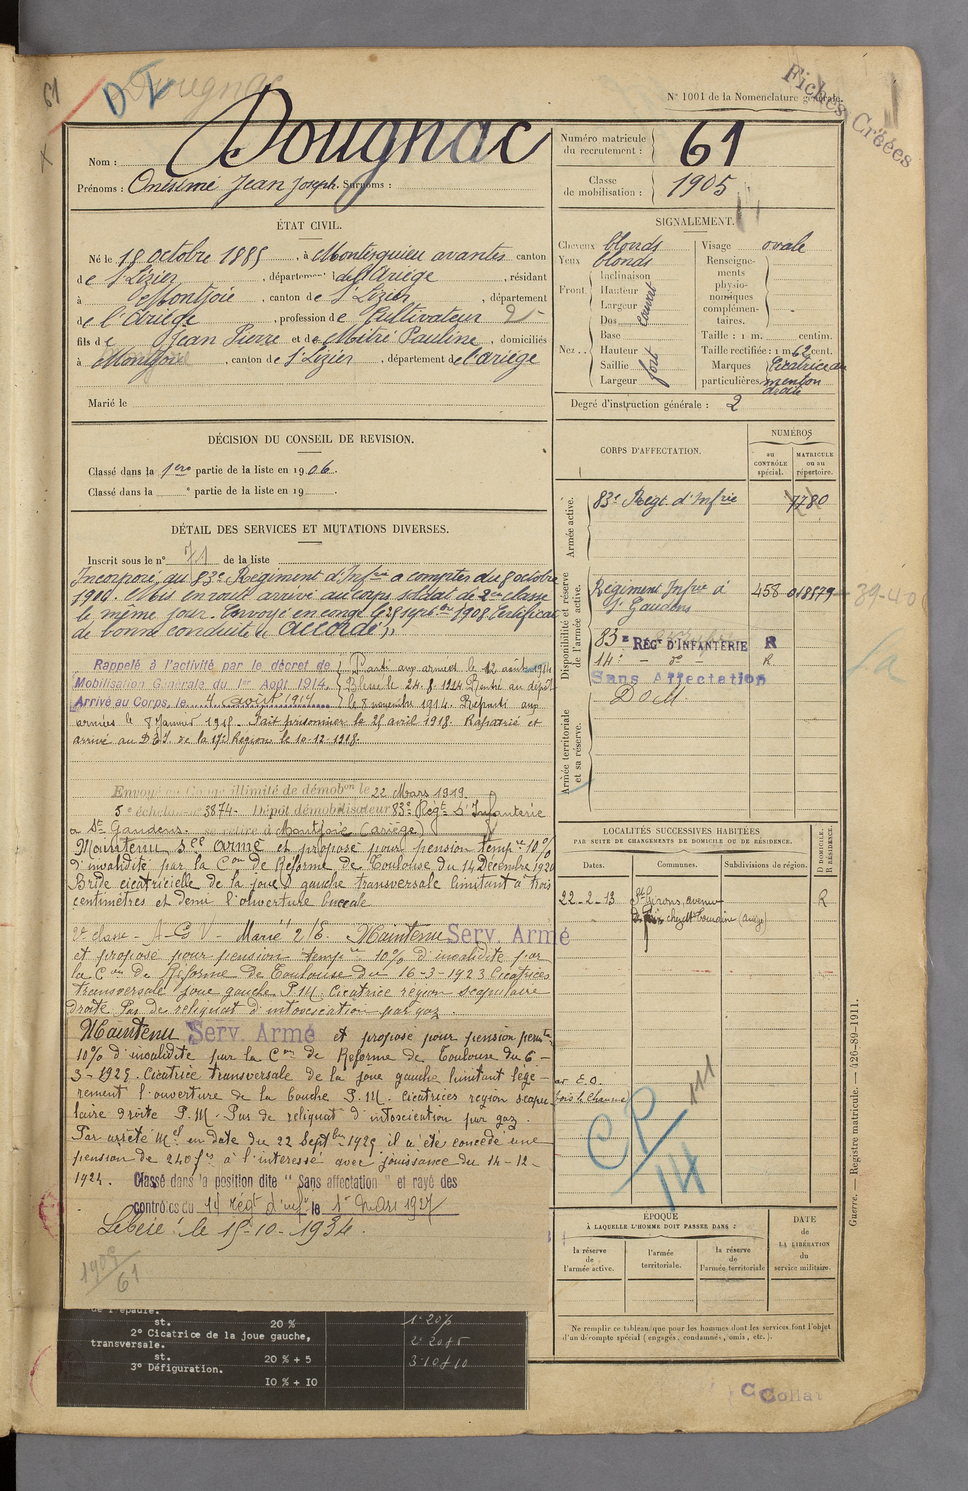 61
D
Dougnac
N° 1001 de la Nomenclature générale.
Fiches Créées
Nom : Dougnac
Prénoms : Onésime Jean Joseph. Surnoms :
Numéro matricule du recrutement : 61
Classe de mobilisation : 1905
ÉTAT CIVIL.
Né le 18 octobre 1885, à Montesquieu avantes canton
de St Lizier, département de l'Ariège, résidant
à Montjoie, canton de St Lizier, département
de l'Ariège, profession de Cultivateur 2
fils de Jean Pierre et de Mitré Pauline, domiciliés
à Montjoie, canton de St Lizier, département de l'ariège
Marié le
SIGNALEMENT.
Cheveux blonds
Yeux blonds
Front. Inclinaison
Hauteur
Largeur
couvert
Nez .. Dos
Base
Hauteur
Saillie
Largeur
fort
Visage ovale
Renseignements physionomiques complémentaires.
Taille : 1 m. centim.
Taille rectifiée : 1 m 62 cent.
Marques particulières Cicatrice au
menton
droite
Degré d'instruction générale : 2
DÉCISION DU CONSEIL DE REVISION.
Classé dans la 1ere partie de la liste en 1906.
Classé dans la e partie de la liste en 19 .
DÉTAIL DES SERVICES ET MUTATIONS DIVERSES.
Inscrit sous le n° 71 de la liste
Incorporé au 83e Régiment d'Infie a compter du 8 octobre
1906. Mis en route arrivé au corps soldat de 2me classe
le même jour. Envoyé en congé le 25 septbre 1908 Certificat
de bonne conduite « Accordé »
Rappelé à l'activité par le décret de
Mobilisation Générale du 1er Août 1914.
Arrivé au Corps, le 4 août 1914
Parti aux armées le 12 août 1914
Blessé le 24-8-1914 Rentré au dépôt
le 8 novembre 1914. Réparti aux
armées le 8 Janvier 1915. Fait prisonnier le 25 avril 1918. Rapatrié et
arrivé au D.E.I. de la 17e Région le 10-12-1918.
Envoyé en Congé illimité de démobon le 22 Mars 1919.
5e échelon n° 3874 - Dépôt démobilisateur 83e Regt d'Infanterie
a St Gaudens. se retire à Montjoie (ariège)
Maintenu sce armé et proposé pour pension tempre 10%
d'invalidité par la Con de Réforme de Toulouse du 14 Décembre 1920
Bride cicatricielle de la joue gauche transversale limitant à trois
centimètres et demi l'ouverture buccale
2e classe - A-G V - Marié 2 E. Maintenu Serv. Armé
et proposé pour pension tempre 10% d'invalidité par
la Con de Réforme de Toulouse du 16-3-1923 Cicatrices
transversale joue gauche P.M. Cicatrice région scapulaire
droite Pas de reliquat d'intoxication par gaz
Maintenu Serv. Armé et proposé pour pension permte
10% d'invalidité par la Con de Réforme de Toulouse du 6-
3-1925. Cicatrice transversale de la joue gauche limitant légè-
rement l'ouverture de la bouche P.M. Cicatrices région scapu-
laire droite P.M. Pas de reliquat d'intoxication par gaz.
Par arrêté Mel en date du 22 Septbre 1925 il a été concédé une
pension de 240 frs à l'intéressé avec jouissance du 14-12-
1924.
Classé dans la position dite " Sans affectation " et rayé des
contrôles du 14 régt d'infie le 1er Mars 1927
Libéré le 15-10-1934.
1905
61
CORPS D'AFFECTATION.
NUMÉROS
AU CONTRÔLE spécial.
MATRICULE ou au répertoire.
Armée active.
83e Regt. d'Infrie 7780
Disponibilité et réserve de l'armée active.
Régiment Infrie d
St Gaudens 458 018579
39-40
83e RÉGt D'INFANTERIE R
14e - de - R
Sans Affectation
Armée territoriale et sa réserve.
LOCALITÉS SUCCESSIVES HABITÉES
PAR SUITE DE CHANGEMENTS DE DOMICILE OU DE RÉSIDENCE.
Dates.
Communes.
Subdivisions de région.
D DOMICILE. R RÉSIDENCE.
22-2-13 St Girons, avenue R
CP
14
111
ÉPOQUE
À LAQUELLE L'HOMME DOIT PASSER DANS :
la réserve de l'armée active.
l'armée territoriale.
la réserve de l'armée territoriale
DATE de LA LIBÉRATION du service militaire.
Ne remplir ce tableau que pour les hommes dont les services font l'objet
d'un décompte spécial (engagés, condamnés, omis, etc.).
Guerre. — Registre matricule. — 426-89-1911.
de l'épaule.
st. 20 % 1° 20%
2° Cicatrice de la joue gauche,
transversale. 2° 20+5
st. 20 % + 5
3° Défiguration. 3° 10+10
10 % + 10